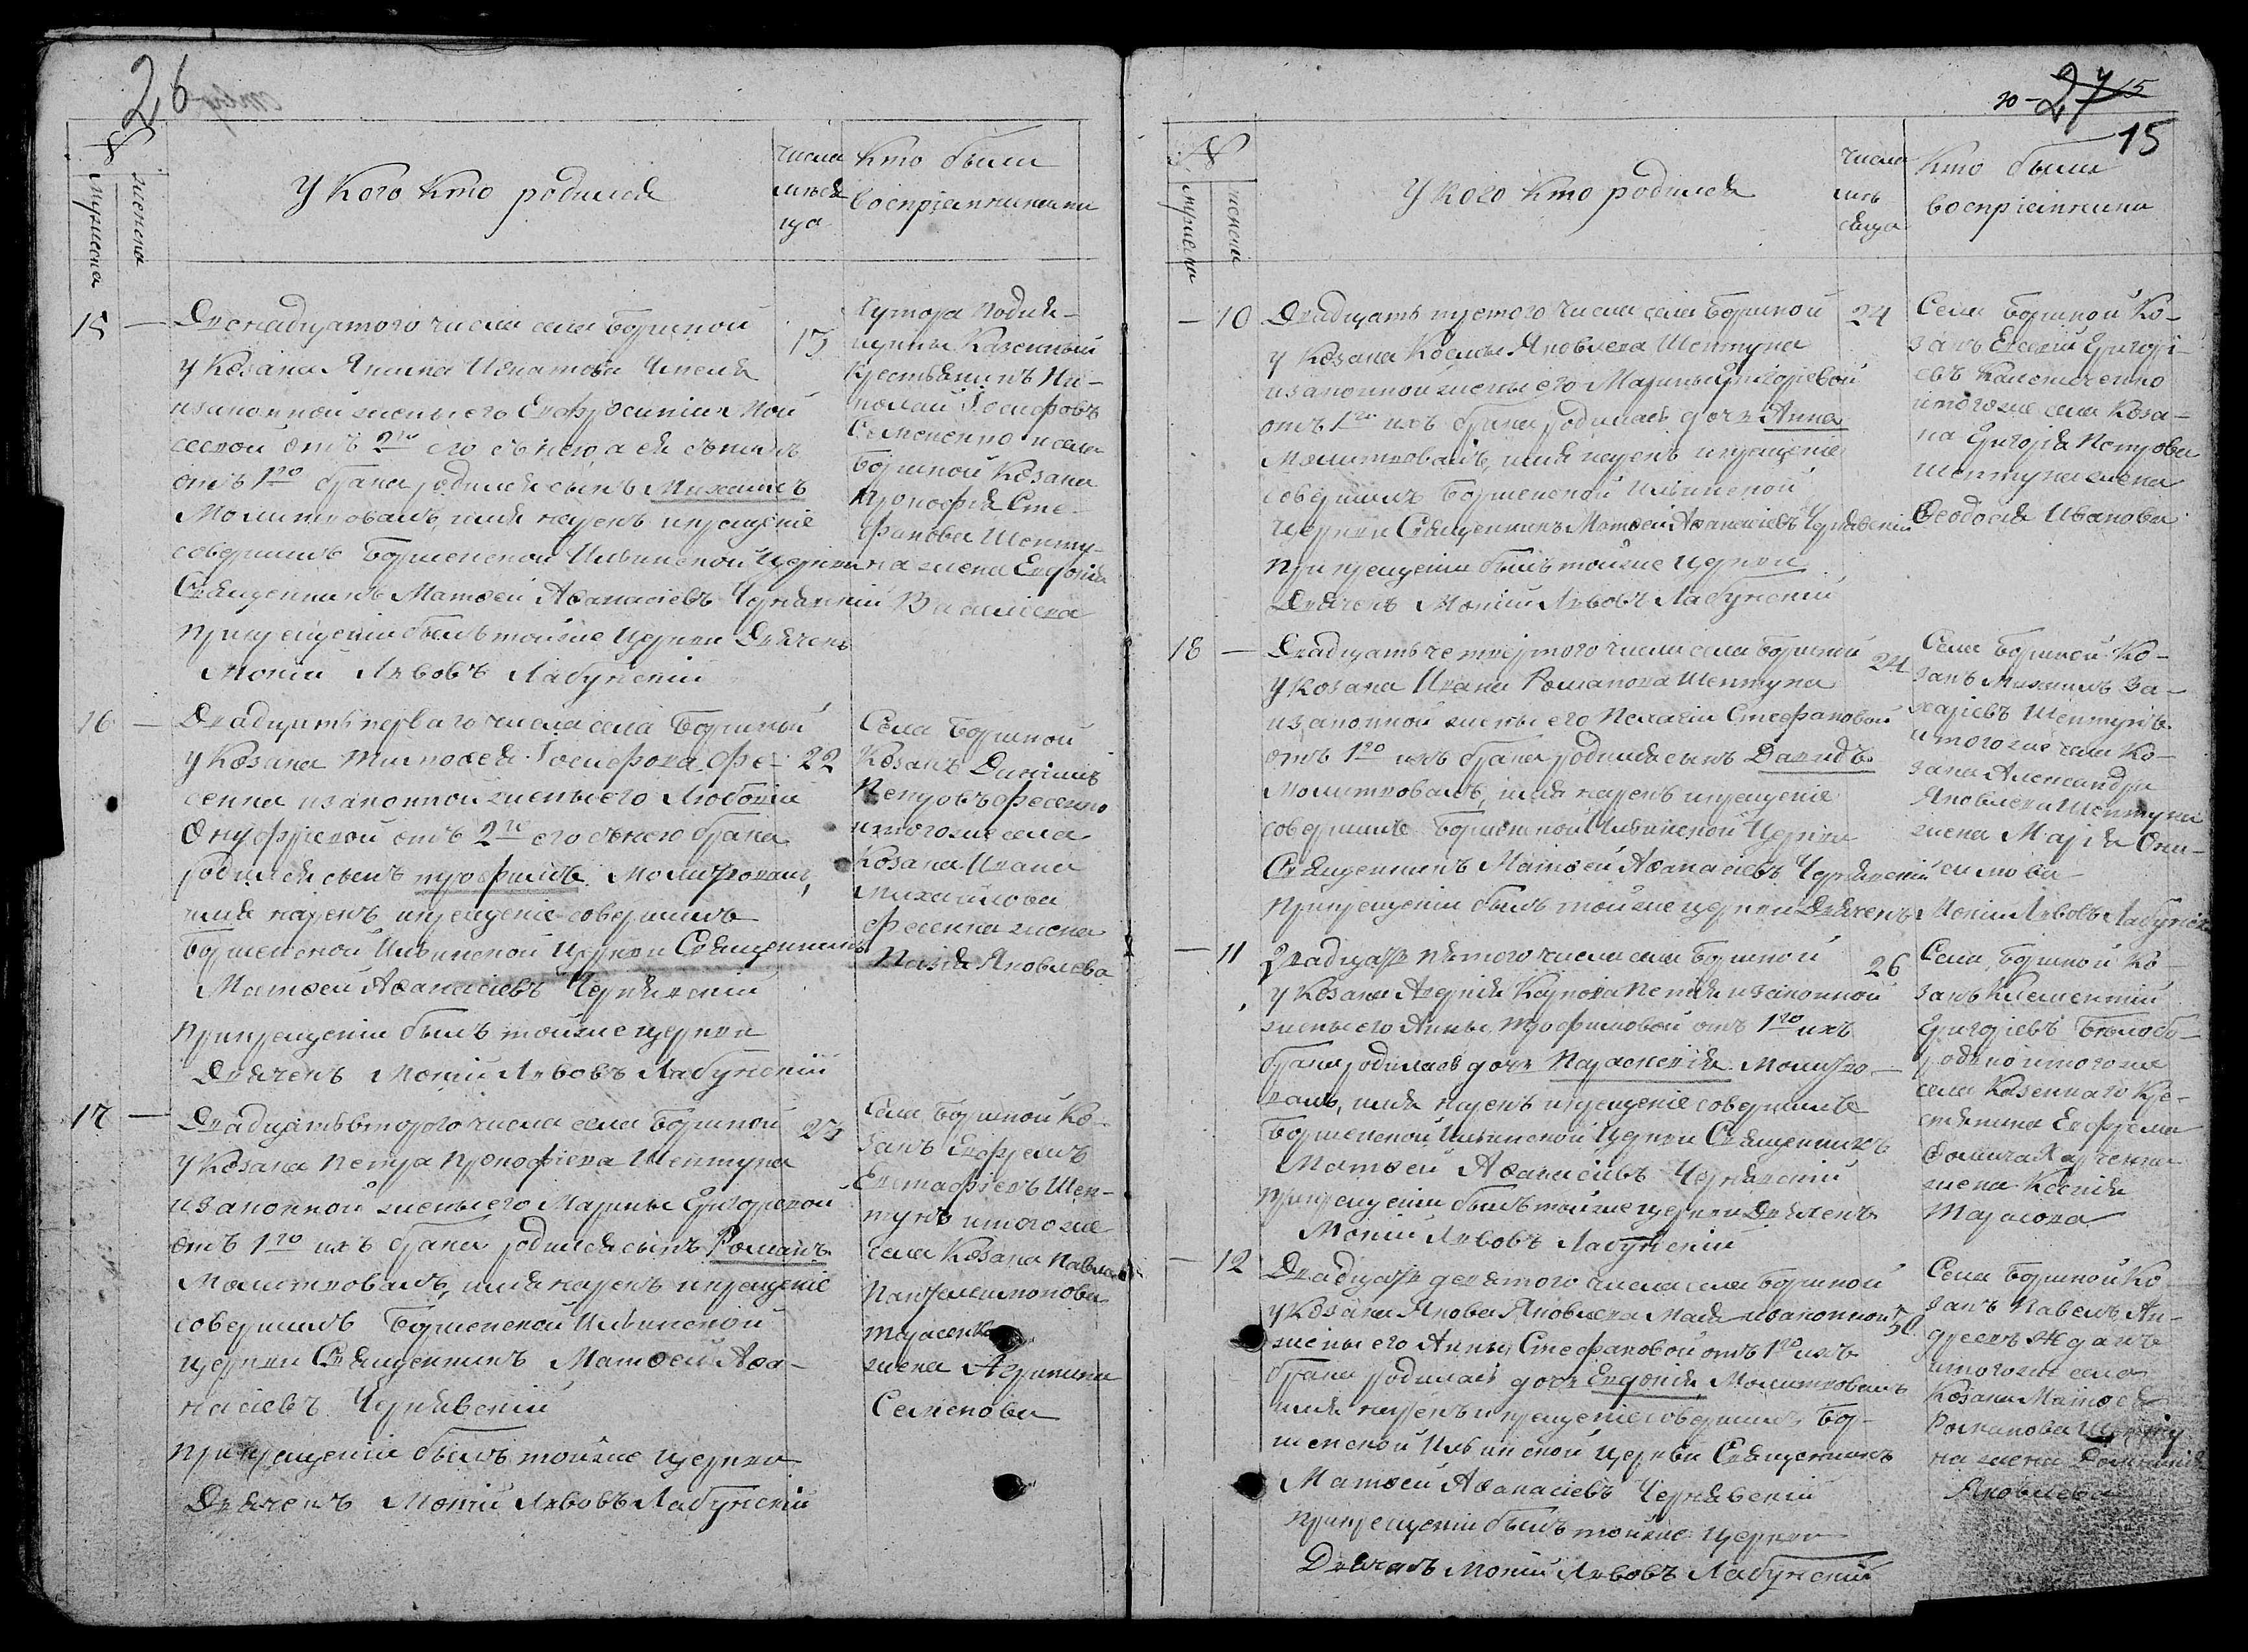 26
№
мужеска
женска
У кого кто родился
числа
мѣся
ца
Кто были
воспріемниками
15 —
Двенадцатого числа села Боршной
у Козака Якима Игнатова
изаконной жены его Евфросиніи
отъ 2го его
отъ 1го брака родился сынъ Михаилъ
Молитвовалъ, имя нарекъ икрещеніе
совершилъ Боршенской Ильинской Церкви
Священникъ Матѳей Аѳанасіевъ Чернявскій
Прикрещеніи былъ тойже церкви Дьячекъ
Мокій Львовъ Лабунскій
13
Хутора
Казенный
Крестьянинъ Ни-
колай Іосифовъ
Семененко исела
Боршной Козака
Прокофія Сте-
фанова Шепту-
на жена Евдокія
Василіева
16 —
Двадцать перваго числа села Боршной
у Козака Тимоѳея Іосифова Фе-
сенка изаконной жены его Любови
Онуфріевой отъ 2го его брака
родился сынъ Трофимъ Молитвовалъ,
имя нарекъ икрещеніе совершилъ
Боршенской Ильинской Церкви Священникъ
Матѳей Аѳанасіевъ Чернявскій
Прикрещеніи былъ тойже церкви
Дьячекъ Мокій Львовъ Лабунскій
22
Села Боршной
Козакъ Даніилъ
Петровъ Фесенко
итогоже села
Козака Ивана
Михайлова
Фесенка жена
Яковлева
17 —
Двадцать второго числа села Боршной
у Козака Петра Прокофіева Шептуна
изаконной жены его Марины Григорьевой
отъ 1го ихъ брака родился сынъ Романъ
Молитвовалъ, имя нарекъ икрещеніе
совершилъ Боршенской Ильинской
церкви Священникъ Матѳей Аѳа-
насіевъ Чернявскій
Прикрещеніи былъ тойже церкви
Дьячекъ Мокій Львовъ Лабунскій
23
Села Боршной Ко-
закъ Евфремъ
Евстафіевъ Шеп-
тунъ итогоже
села Козака Павла
Пантелеимонова
Тарасенка
жена Агрипина
Семенова
27
15
№
мужеска
женска
У кого кто родился
числа
мѣ
сяца
Кто были
воспріемники
— 10
Двадцать третого числа села Боршной
у Козака Косьмы Яковлева Шептуна
изаконной жены его Марины Григоріевой
отъ 1го ихъ брака родилась дочь Анна
Молитвовалъ, имя нарекъ икрещеніе
совершилъ Боршенской Ильинской
Церкви Священникъ Матѳей Аѳанасіевъ Чернявскій
Прикрещеніи былъ тойже церкви
Дьячекъ Мокій Львовъ Лабунскій
24
Села Боршной Ко-
закъ Григорі-
евъ
итогоже села Коза-
ка Григорія Петрова
Шептуна жена
Ѳеодосія Иванова
18 —
Двадцать четвертого числа села Боршной
у Козака Ивана Романова Шептуна
изаконной жены его Пелагіи Стефановой
отъ 1го ихъ брака родился сынъ Давидъ
Молитвовалъ, имя нарекъ икрещеніе
совершилъ Боршенской Ильинской Церкви
Священникъ Матѳей Аѳанасіевъ Чернявскій
Прикрещеніи былъ тойже церкви Дьячекъ Мокій Львовъ Лабунскій
24
Села Боршной Ко-
закъ Михаилъ За-
харіевъ Шептунъ
итогоже села Ко-
зака Александра
Яковлева Шептуна
жена Марія Они-
симова
— 11
Двадцать пятого числа села Боршной
у Козака Карпова изаконной
жены его Анны Трофимовой отъ 1го ихъ
брака родилась дочь Параскевія Молитво-
валъ, имя нарекъ икрещеніе совершилъ
Боршенской Ильинской Церкви Священникъ
Матѳей Аѳанасіевъ Чернявскій
Прикрещеніи былъ тойже церкви Дьячекъ
Мокій Львовъ Лабунскій
26
Села Боршной Ко-
закъ Климентій
Григоріевъ Бѣлобо-
родко итогоже
села Казеннаго Кре-
стянина Евфрема
Ѳомича Харченка
жена Ксенія
Тарасова
— 12
Двадцать девятого числа села Боршной
у Козака Якова Яковлева изаконной
жены его Анны Стефановой отъ 1го ихъ
брака родилась дочь Евдокія Молитвовалъ
имя нарекъ икрещеніе совершилъ Бор-
шенской Ильинской церкви Священникъ
Матѳей Аѳанасіевъ Чернявскій
Прикрещеніи былъ тойже церкви
Дьячекъ Мокій Львовъ Лабунскій
30
Села Боршной Ко-
закъ Павелъ Ан-
дреевъ Жданъ
итогоже села
Козака Матѳея
Романова Шепту
на жена
Яковлева